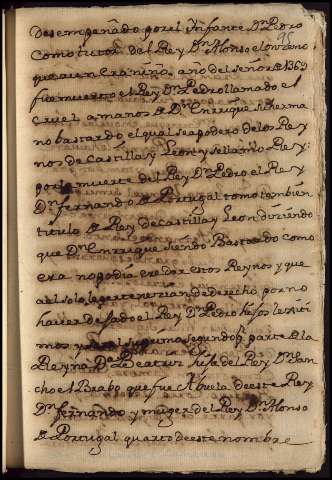 95
desempeñado por el Ynfante Dn Pedro
como tutor del Rey Dn Alonso el onzeno
que aun era niño, año del señor de 1369
fue muerto el Rey Dn Pedro llamado el
Cruel a manos de Dn Enrrique su herma
no bastardo el qual se apodero de los Rey
nos de Castilla y Leon y se llamo Rey:
por la muerte del Rey Dn Pedro el Rey
Dn fernando de Portugal tomo tambien
titulo de Rey de Castilla y Leon diziendo
que Dn Enrrique siendo Bastardo como
era no podia eredar estos Reynos y que
a el solo le pertenezian de derecho por no
haver dejado el Rey Dn Pedro hijos lexiti
mos y ser el su primo segundo por parte de la
Reyna Da Beatriz hija del Rey Dn San
cho el Brabo que fue Abuela de este Rey
Dn fernando y muger del Rey Dn Alonso
de Portugal quarto de este nombre